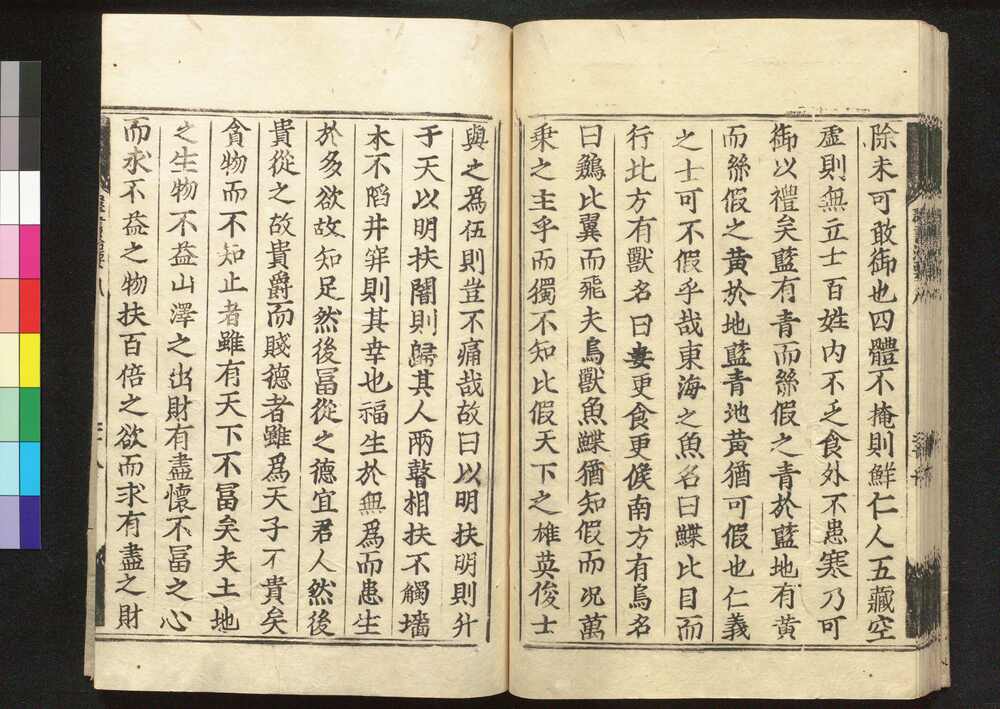 除未可敢御也四體不掩則鮮仁人五藏空
虛則無立士百姓内不乏食外不患寒乃可
御以禮矣藍有青而絲假之青於藍地有黄
而絲假之黄於地藍青地黄猶可假也仁義
之士可不假乎哉東海之魚名曰鰈比目而
行比方有獸名曰婁更食更候南方有鳥名
曰鶼比翼而飛夫鳥獸魚鰈猶知假而况萬
乗之主乎而獨不知比假天下之雄英俊士
與之爲伍則豈不痛哉故曰以明扶明則升
于天以明扶闇則歸其人兩瞽相扶不觸墻
木不陷井穽則其幸也福生於無爲而患生
於多欲故知足然後冨從之德宜君人然後
貴從之故貴爵而賤德者雖爲天子不貴矣
貪物而不知止者雖有天下不冨矣夫土地
之生物不益山澤之出財有盡懷不冨之心
而求不益之物扶百倍之欲而求有盡之財